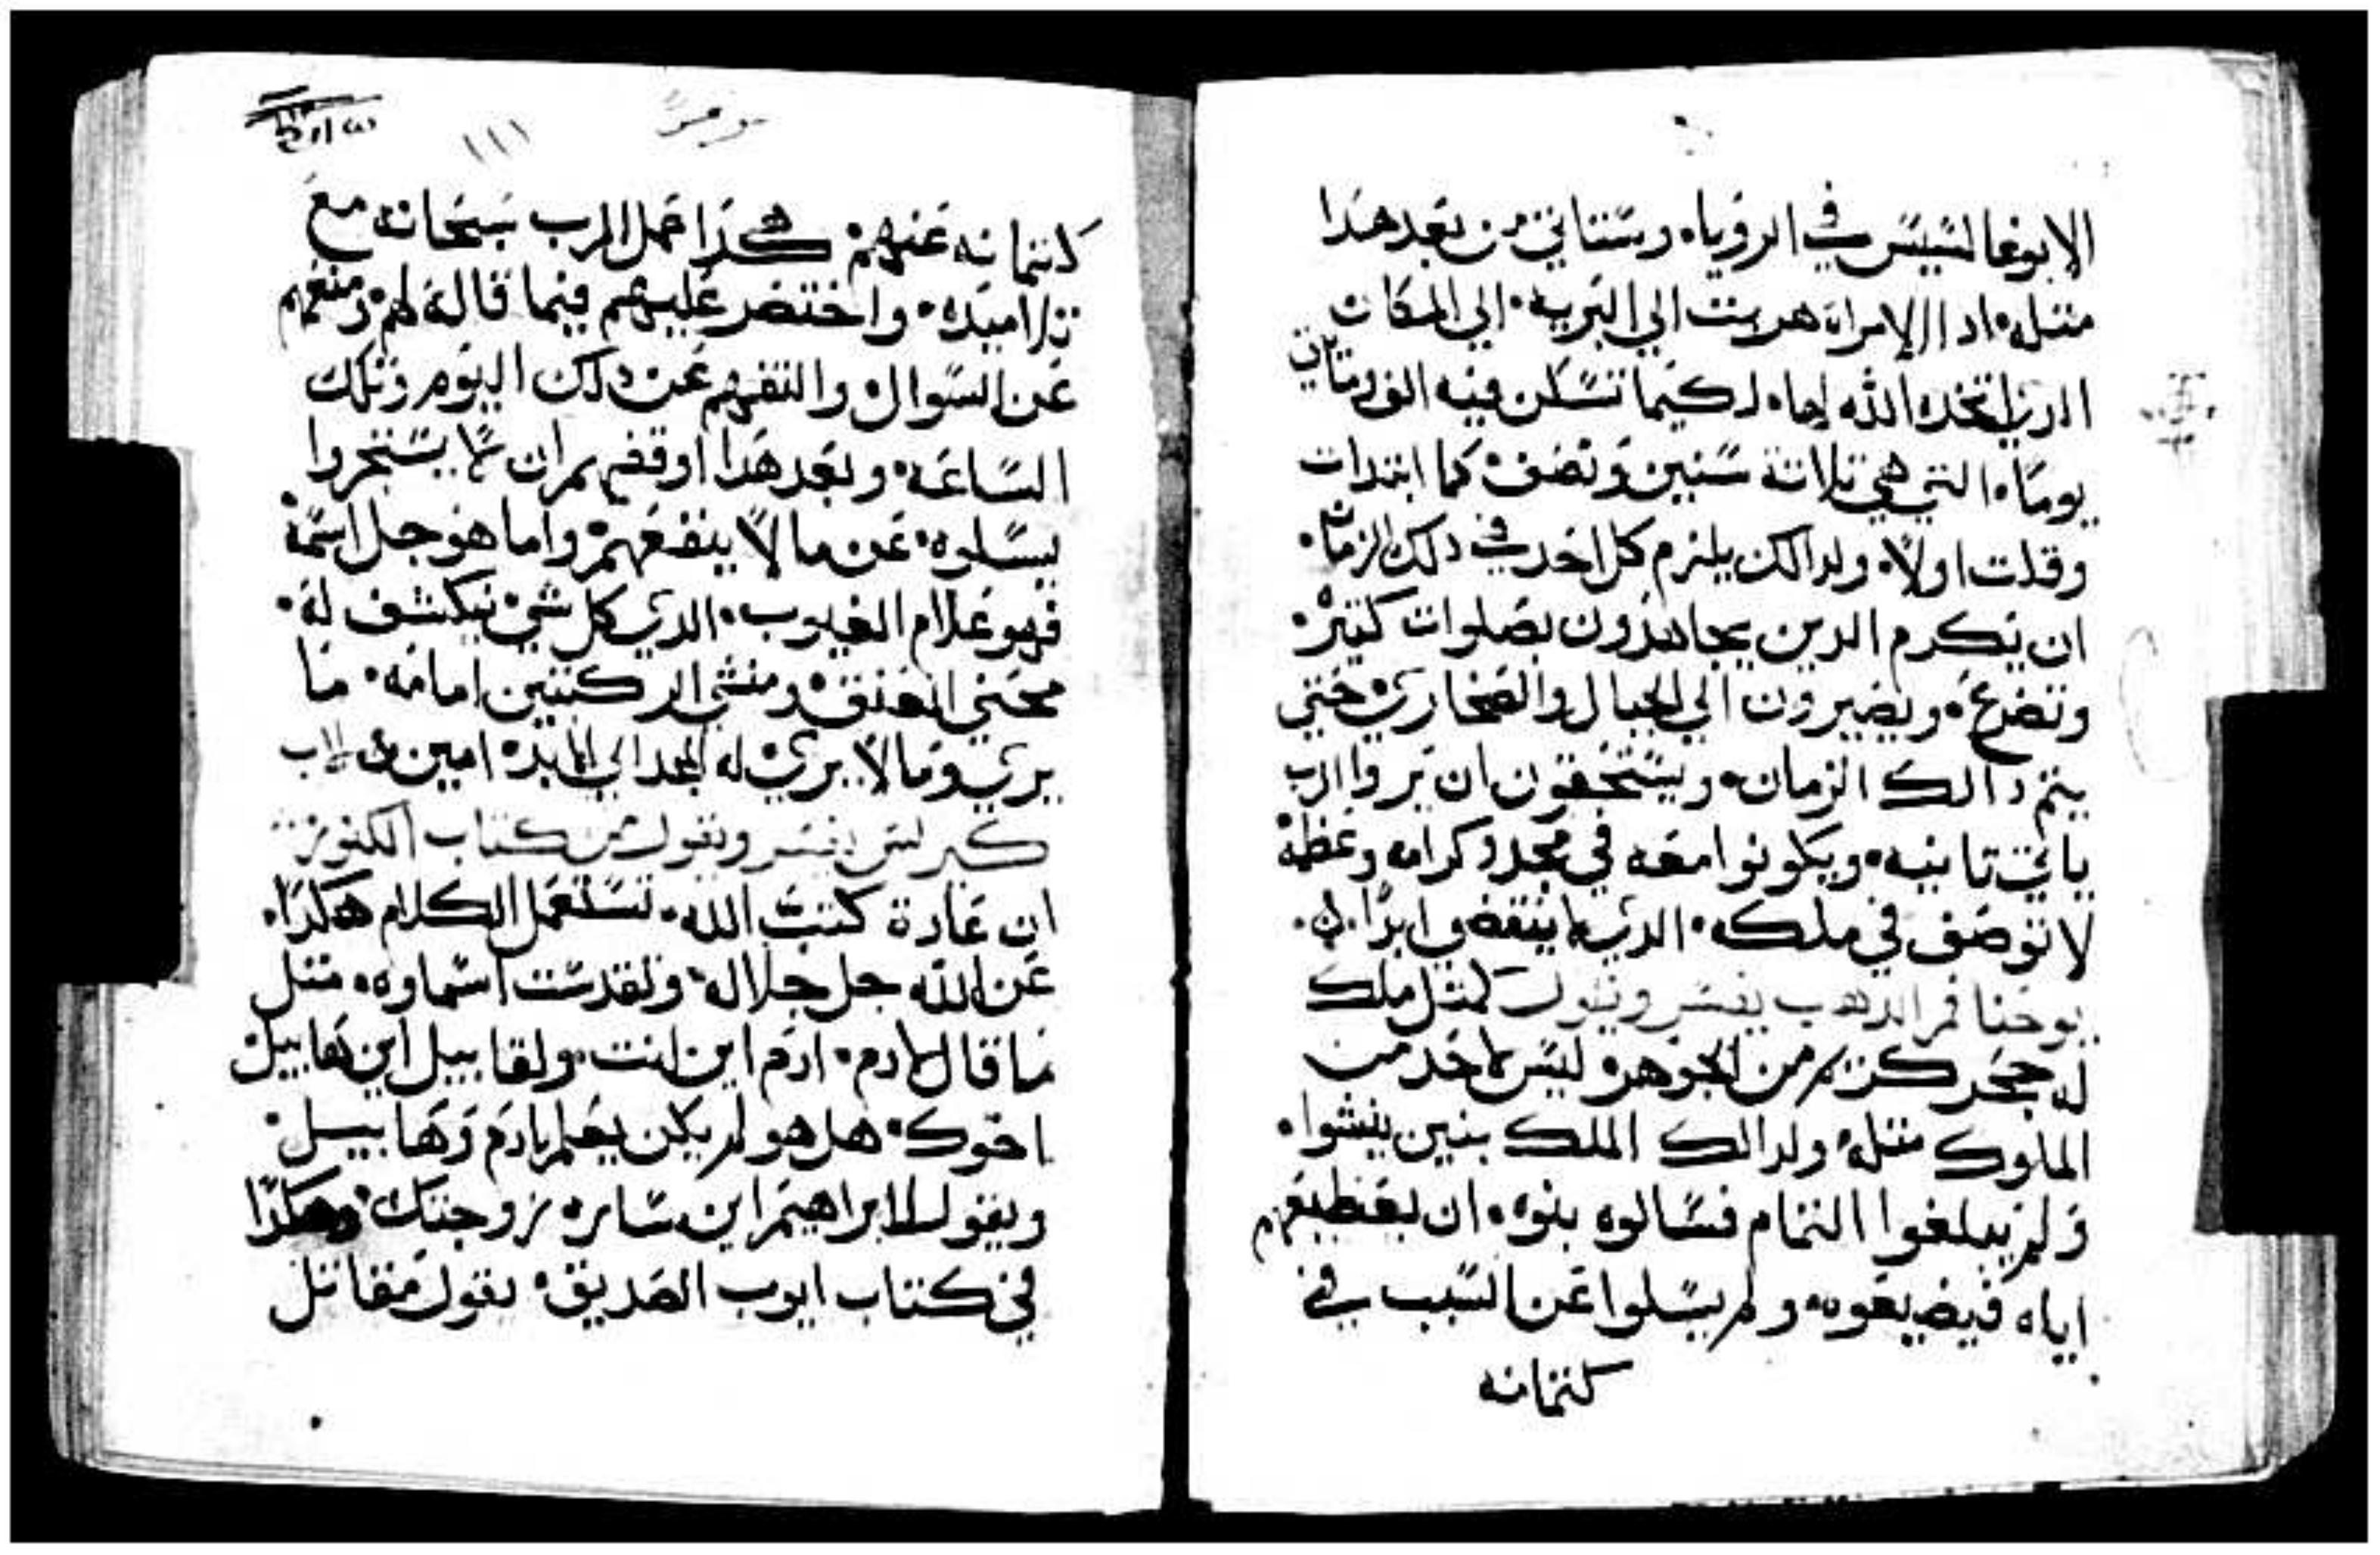 الابوغالمسيس في الرويا. وستاتي من بعد هدا
متله. اد الامراه هربت الي البريه. الي المكان
الدي اتخده الله لها. لكيما تسكن فيه الف ومايتي
يوما. التي هي تلاتة سنين ونصف. كما ابتدات
وقلت اولا. ولدالك يلزم كل احد في دلك الزمان.
ان يكرم الدين يجاهدون بصلوات كتيره.
وتضرع. ويصيرون الي الجبال والصحاري حتي
يتم دالك الزمان. ويستحقون ان يروا الرب
ياتي تانيه. ويكونوا معه في مجد وكرامه وعظمه
لا توصف في ملكه. الدي لا ينقضي ابدا.
يوحنا فم الدهب يفسر ويقول كمتل ملك
له حجر كريم من الجوهر. وليس لاحد من
الملوك متله. ولدالك الملك بنين ينشوا.
ولم يبلغوا التمام فسالوه بنوه. ان يعطيهم
اياه فيضيعوه. ولم يسلوا عن السبب في
كتمانه
١١١
كتمانه عنهم. هكدا عمل الرب سبحانه مع
تلاميده. واختصر عليهم فيما قاله لهم. ومنعهم
عن السوال والتفهم عن دلك اليوم وتلك
الساعه. وبعد هدا اوقفهم بران لا يستجروا
يسلوه. عن ما لا ينفعهم. واما هو جل اسمه
فهو علام الغيوب. الدي كل شي يكشف له.
محني العنق. ومنتني الركبتين امامه. ما
يري وما لا يري. له المجد الي الابد امين
كيرلس يفسر ويقول من كتاب الكنوز
ان عادة كتب الله. تستعمل الكلام هكدا.
عن الله جل جلاله. وتقدست اسماوه. متل
ما قال لادم. ادم اين انت. ولقابيل اين هابيل
اخوك. هل هو لم يكن يعلم بادم وهابيل.
ويقول لابراهيم اين ساره زوجتك. وهكدا
في كتاب ايوب الصديق. يقول مقاتل